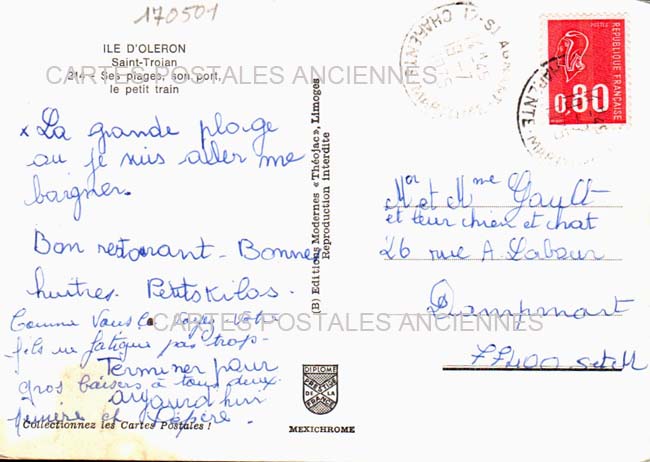 170501
ILE D'OLERON
Saint-Trojan
214 - Ses plages, son port,
le petit train
CARTES POSTALES ANCIENNES
x La grande plage
ou je suis aller me
baigner.
Bon restaurant - Bonne
huitres. Petits Kilos.
Comme vous le voyez votre
fils ne fatigue pas trop -
Terminer pour
gros baisers à tous deux.
aujourd'hui
mémère et Pépère
Collectionnez les Cartes Postales !
(B) Editions Modernes «Théojac», Limoges
Reproduction interdite
DIPLOME
PRESTIGE
DE LA
FRANCE
MEXICHROME
POSTES
REPUBLIQUE FRANÇAISE
0,80
CHARENTE
Mr et Mme Gault
et leur chien et chat
26 rue A. Labour
Dampmart
77400
CARTES POSTALES ANCIENNES